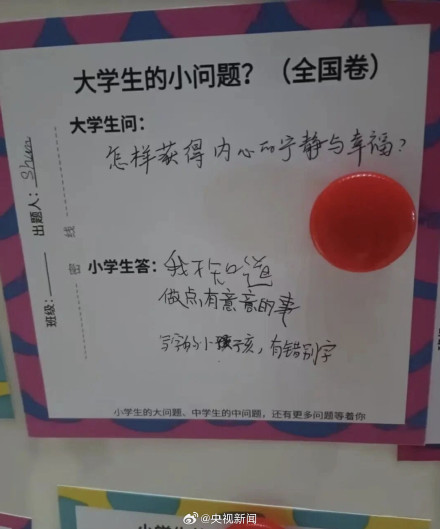 大学生的小问题？（全国卷）
大学生问：
怎样获得内心的宁静与幸福？
出题人：shun
班级：
密 线
小学生答：我不知道
做点有意意的事
写字的小孩子，有错别字
小学生的大问题、中学生的中问题，还有更多问题等着你
@央视新闻